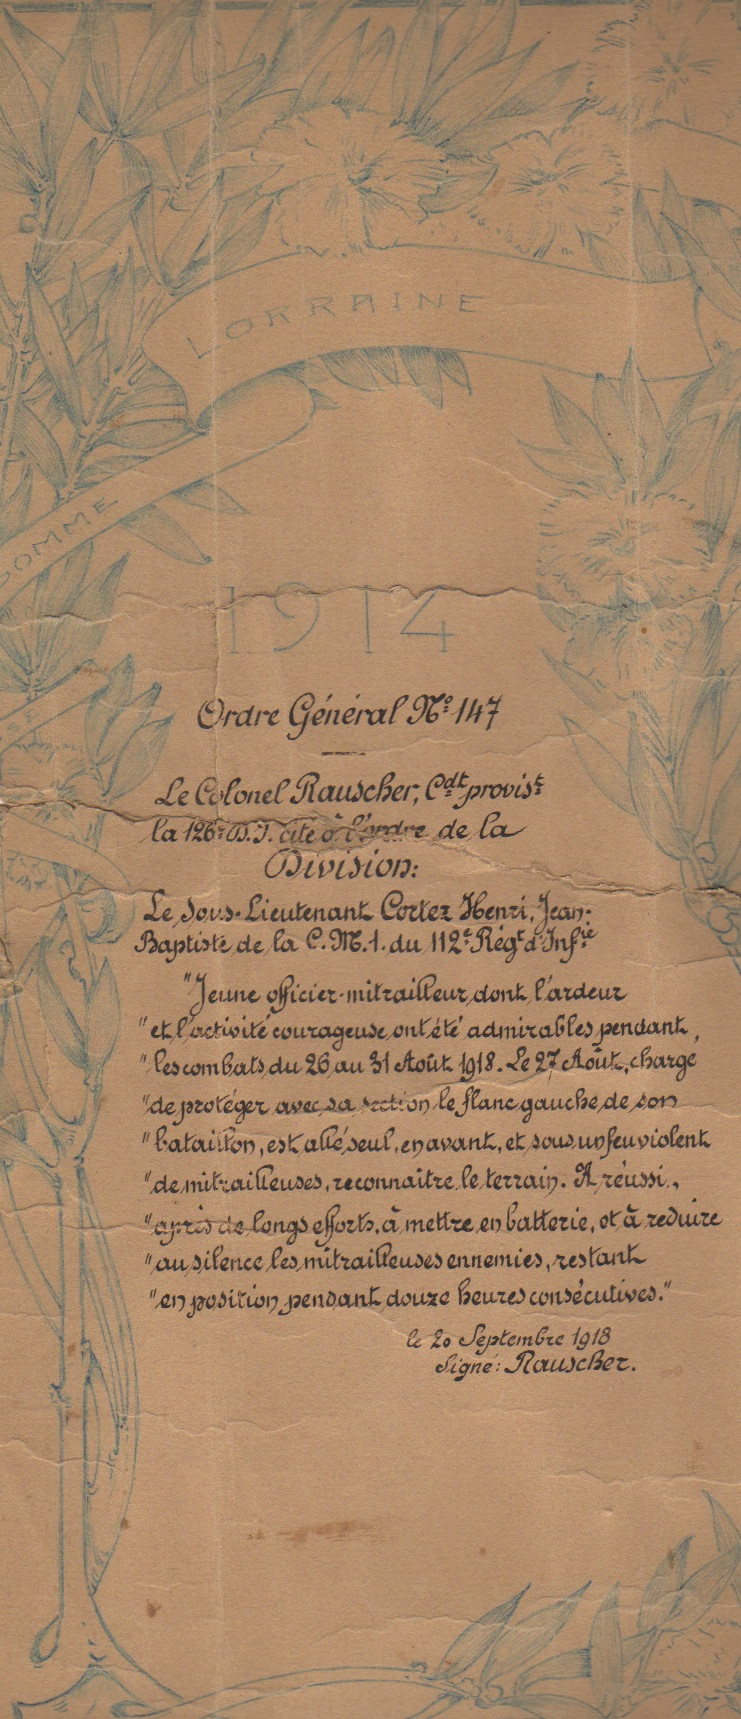 LORRAINE
SOMME
1914
Ordre Général Nº 147
Le Colonel Rauscher, Cdt provist
la 126e D.I. cite à l'ordre de la
Division:
Le Sous-Lieutenant Cortez Henri, Jean-
Baptiste de la C.M.1. du 112e Régt d'Infie
"Jeune officier-mitrailleur, dont l'ardeur
"et l'activité courageuse, ont été admirables, pendant,
"les combats du 26 au 31 Août 1918. Le 27 Août, chargé
"de protéger avec sa section le flanc gauche, de son
"bataillon, est allé seul, en avant, et sous un feu violent
"de mitrailleuses, reconnaître le terrain. A réussi,
"après de longs efforts, à mettre en batterie, et à réduire
"au silence les mitrailleuses ennemies, restant
"en position, pendant douze heures consécutives."
le 20 Septembre 1918
Signé: Rauscher.